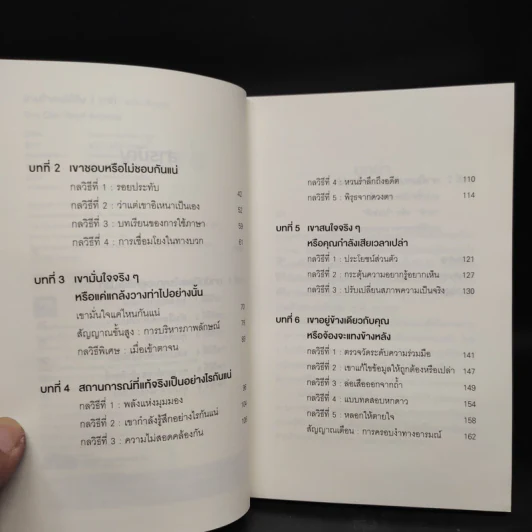 บทที่ 2 เขาชอบหรือไม่ชอบกันแน่
กลวิธีที่ 1 : รอยประทับ
กลวิธีที่ 2 : ว่าแต่เขาอิเหนาเป็นเอง 52
กลวิธีที่ 3 : บทเรียนของการใช้ภาษา 59
กลวิธีที่ 4 : การเชื่อมโยงในทางบวก 61
บทที่ 3 เขามั่นใจจริง ๆ
หรือแค่แกล้งวางท่าไปอย่างนั้น
เขามั่นใจแค่ไหนกันแน่ 70
สัญญาณขั้นสูง : การบริหารภาพลักษณ์
กลวิธีพิเศษ : เมื่อเข้าตาจน
บทที่ 4 สถานการณ์ที่แท้จริงเป็นอย่างไรกันแน่
กลวิธีที่ 1 : พลังแห่งมุมมอง
กลวิธีที่ 2 : เขากำลังรู้สึกอย่างไรกันแน่
กลวิธีที่ 3 : ความไม่สอดคล้องกัน
กลวิธีที่ 4 : หวนรำลึกถึงอดีต 110
กลวิธีที่ 5 : พิรุธจากดวงตา 114
บทที่ 5 เขาสนใจจริง ๆ
หรือคุณกำลังเสียเวลาเปล่า
กลวิธีที่ 1 : ประโยชน์ส่วนตัว 121
กลวิธีที่ 2 : กระตุ้นความอยากรู้อยากเห็น 127
กลวิธีที่ 3 : ปรับเปลี่ยนสภาพความเป็นจริง 130
บทที่ 6 เขาอยู่ข้างเดียวกับคุณ
หรือจ้องจะแทงข้างหลัง
กลวิธีที่ 1 : ตรวจวัดระดับความร่วมมือ 141
กลวิธีที่ 2 : เขาแก้ไขข้อมูลให้ถูกต้องหรือเปล่า 147
กลวิธีที่ 3 : ล่อเสือออกจากถ้ำ 149
กลวิธีที่ 4 : แบบทดสอบหกดาว 154
กลวิธีที่ 5 : หลอกให้ตายใจ 158
สัญญาณเตือน : การครอบงำทางอารมณ์ 162